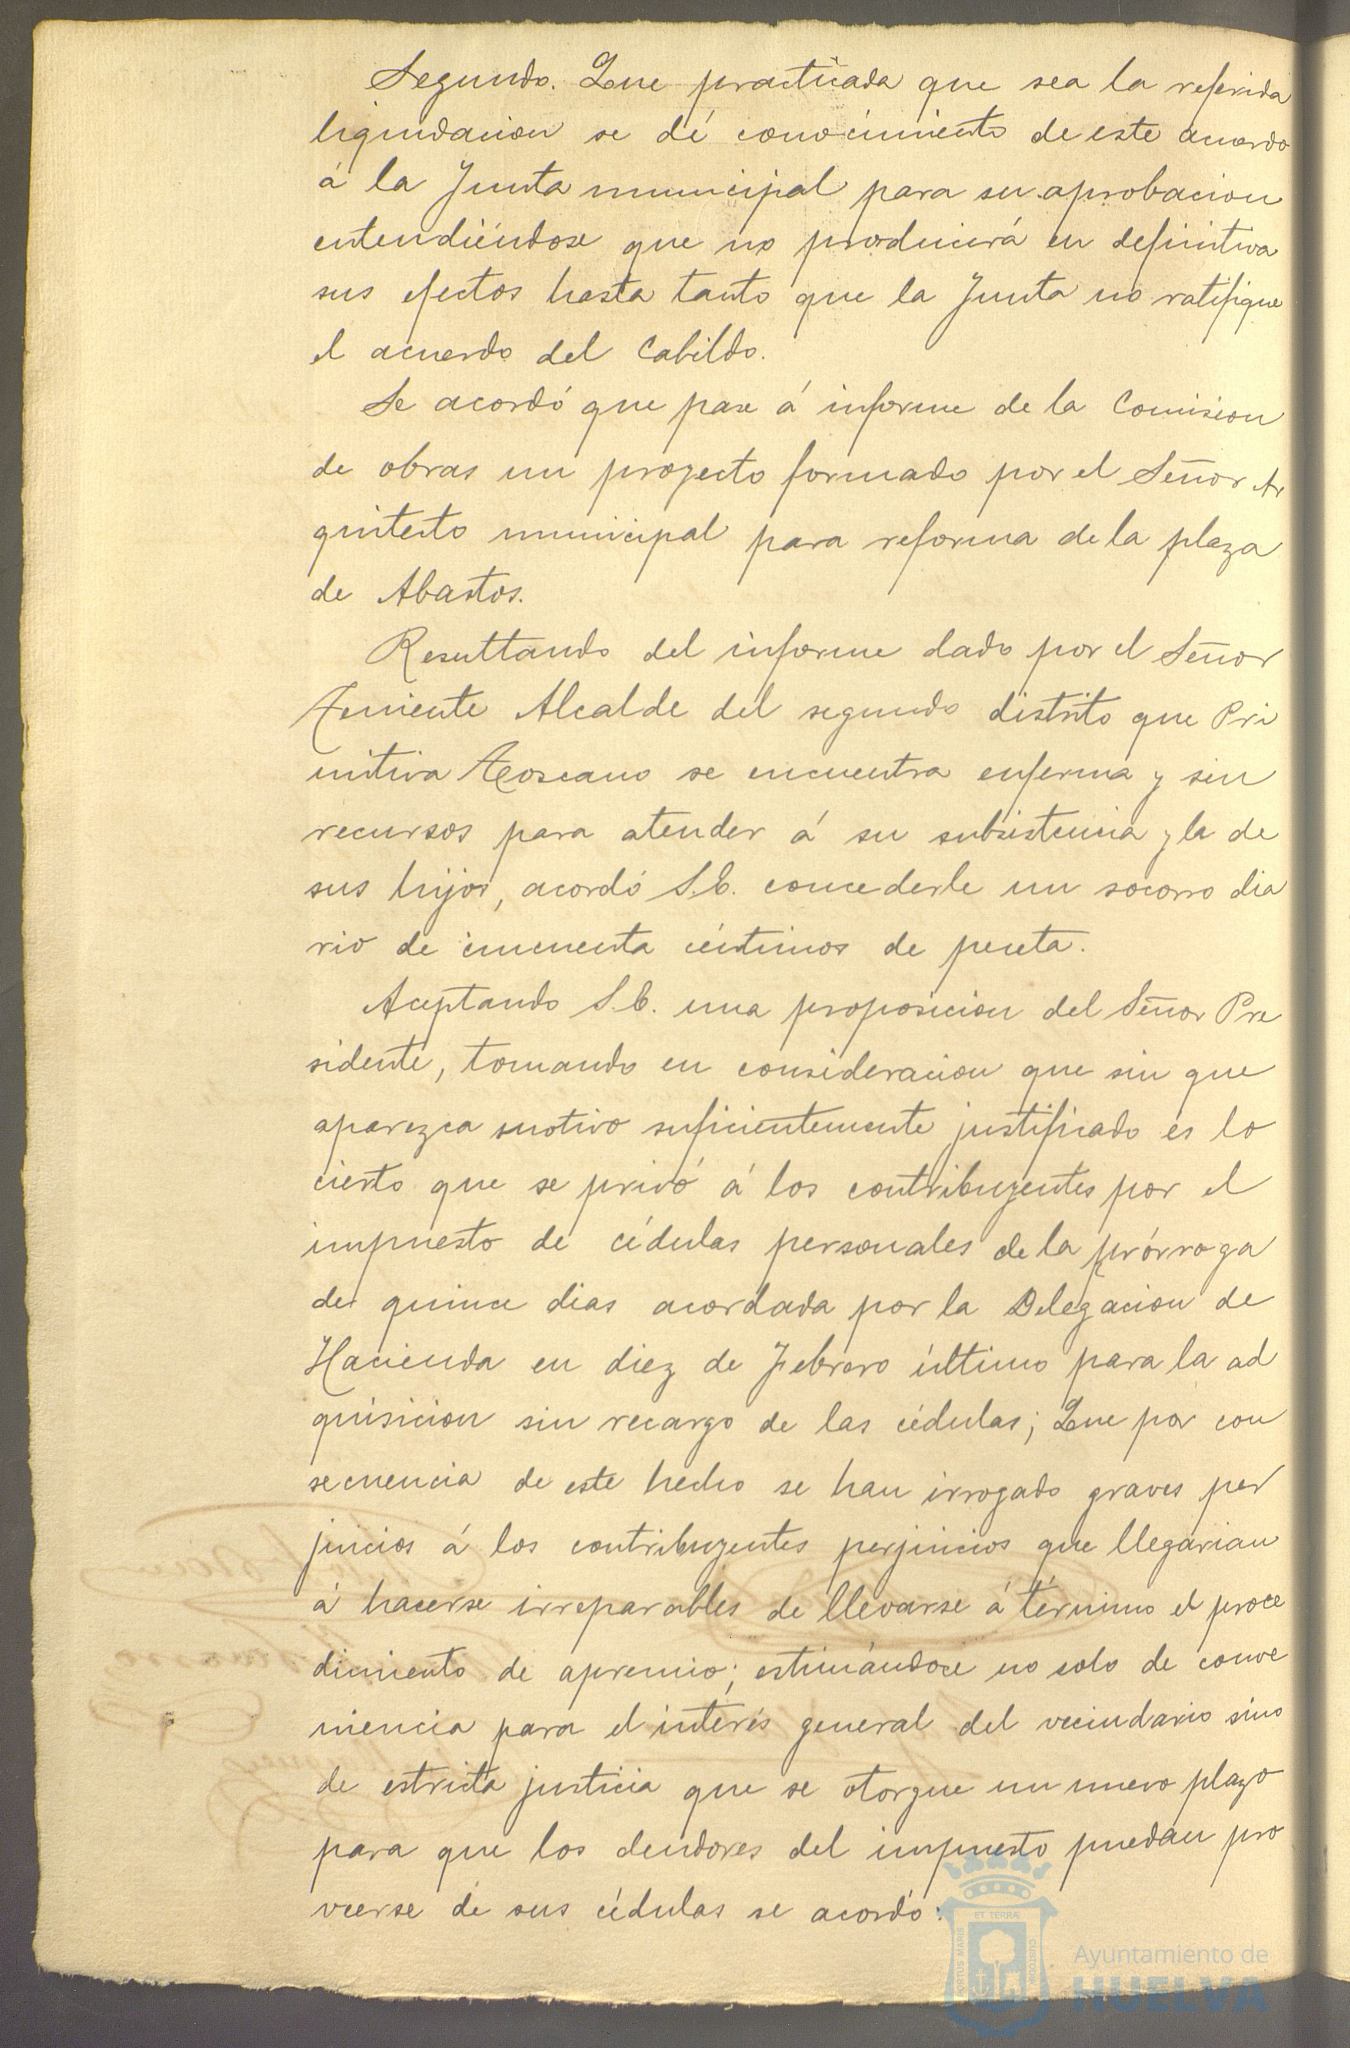 Segundo. Que practicada que sea la referida
liquidacion se dé conocimiento de este acuerdo
á la Junta municipal para su aprobacion
entendiéndose que no producirá en definitiva
sus efectos hasta tanto que la Junta no ratifique
el acuerdo del Cabildo.
Se acordó que pase á informe de la Comision
de obras un proyecto formado por el Señor Ar
quitecto municipal para reforma de la plaza
de Abastos.
Resultando del informe dado por el Señor
Teniente Alcalde del segundo distrito que Pri
mitiva Toscano se encuentra enferma y sin
recursos para atender á su subsistencia y la de
sus hijos, acordó S.C. concederle un socorro dia
rio de cincuenta céntimos de peseta.
Aceptando S.C. una proposicion del Señor Pre
sidente, tomando en consideracion que sin que
aparezca motivo suficientemente justificado es lo
cierto que se privó á los contribuyentes por el
impuesto de cédulas personales de la prórroga
de quince dias acordada por la Delegacion de
Hacienda en diez de Febrero último para la ad
quisicion sin recargo de las cédulas; Que por con
secuencia de este hecho se han irrogado graves per
juicios á los contribuyentes perjuicios que llegarian
á hacerse irreparables de llevarse á término el proce
dimiento de apremio; estimándose no solo de conve
niencia para el interés general del vecindario sino
de estricta justicia que se otorgue un nuevo plazo
para que los deudores del impuesto puedan pro
veerse de sus cédulas se acordó:
PORTUS MARIS
ET TERRÆ
CUSTODIA
Ayuntamiento de
HUELVA